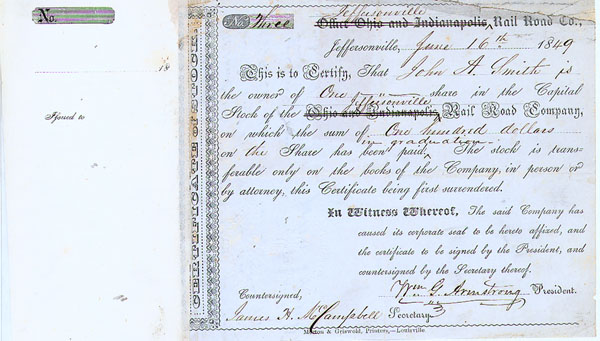 No.
18
Issued to
STOCK CERTIFICATE
No. Three
Jeffersonville
Office Ohio and Indianapolis, Rail Road Co.,
Jeffersonville, June 16th 1849
This is to Certify, That John A. Smith is
the owner of One share in the Capital
Jeffersonville
Stock of the Ohio and Indianapolis Rail Road Company,
on which the sum of One hundred dollars
in graduation
on the Share has been paid. The stock is trans-
ferable only on the books of the Company, in person or
by attorney, this Certificate being first surrendered.
In Witness Whereof, The said Company has
caused its corporate seal to be hereto affixed, and
the certificate to be signed by the President, and
countersigned by the Secretary thereof.
Wm G. Armstrong President.
Countersigned,
James H. McCampbell Secretary
Morton & Griswold, Printers,—Louisville